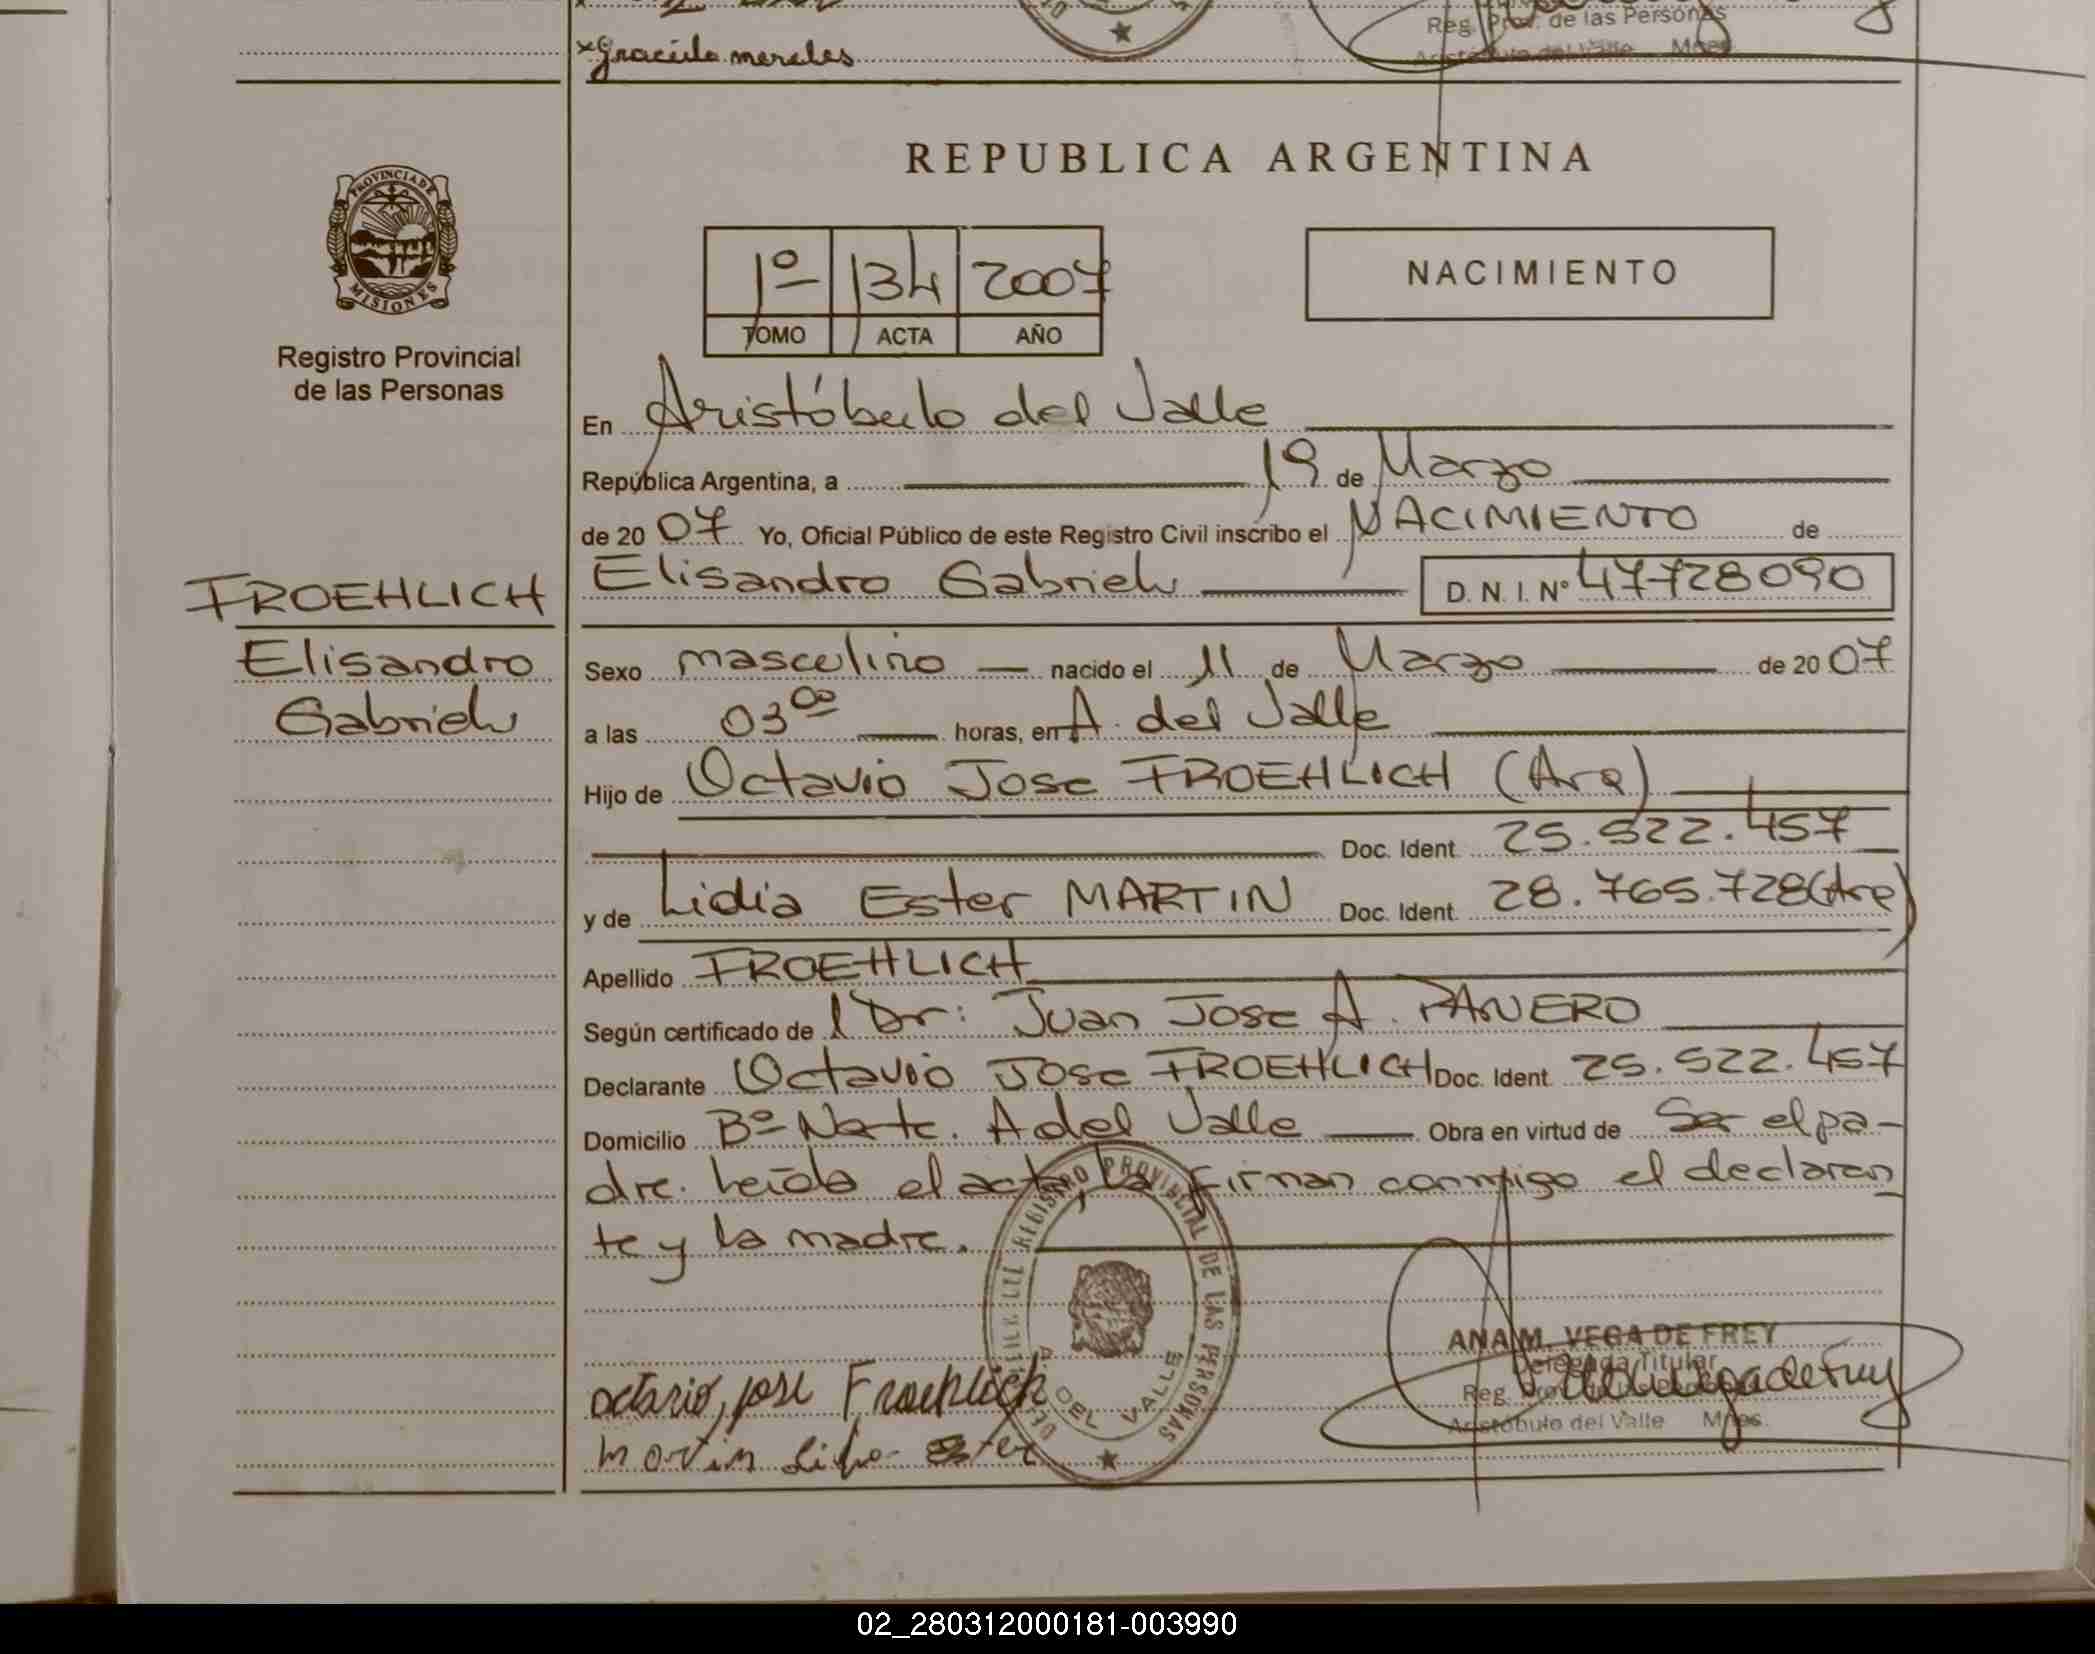 Reg. Prov. de las Personas
Aristóbulo del Valle Mnes.
REPUBLICA ARGENTINA
PROVINCIA DE
MISIONES
Registro Provincial
de las Personas
1º 134 2007
TOMO ACTA AÑO
NACIMIENTO
En Aristóbulo del Valle
República Argentina, a 19 de Marzo
de 20 07 Yo, Oficial Público de este Registro Civil inscribo el NACIMIENTO de
FROEHLICH
Elisandro Gabriel D. N. I. Nº 47728090
Elisandro
Gabriel
Sexo masculino nacido el 11 de Marzo de 20 07
a las 03 00 horas, en A. del Valle
Hijo de Octavio Jose FROEHLICH (Arg)
Doc. Ident. 25.522.457
y de Lidia Ester MARTIN Doc. Ident. 28.765.728 (Arg)
Apellido FROEHLICH
Según certificado de l Dr: Juan Jose A. PANERO
Declarante Octavio Jose FROEHLICH Doc. Ident. 25.522.457
Domicilio Bº Norte. A del Valle Obra en virtud de Ser el pa-
dre. Leída el acta, la firman conmigo el declaran
te y la madre.
REGISTRO PROVINCIAL DE LAS PERSONAS
A. DEL VALLE
ANA M. VEGA DE FREY
Delegada Titular
Reg. Prov. de las Personas
Aristóbulo del Valle Mnes.
octavio, jose Froehlich
martin Ester
02_280312000181-003990